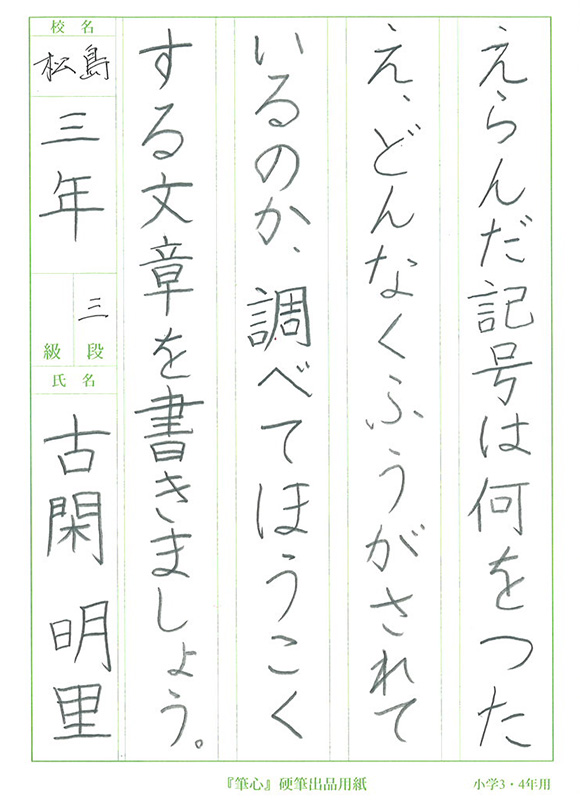 えらんだ記号は何をつた
え、どんなくふうがされて
いるのか、調べてほうこく
する文章を書きましょう。
校名
松島
三年
三
級段
氏名
古閑 明里
『筆心』硬筆出品用紙
小学3・4年用